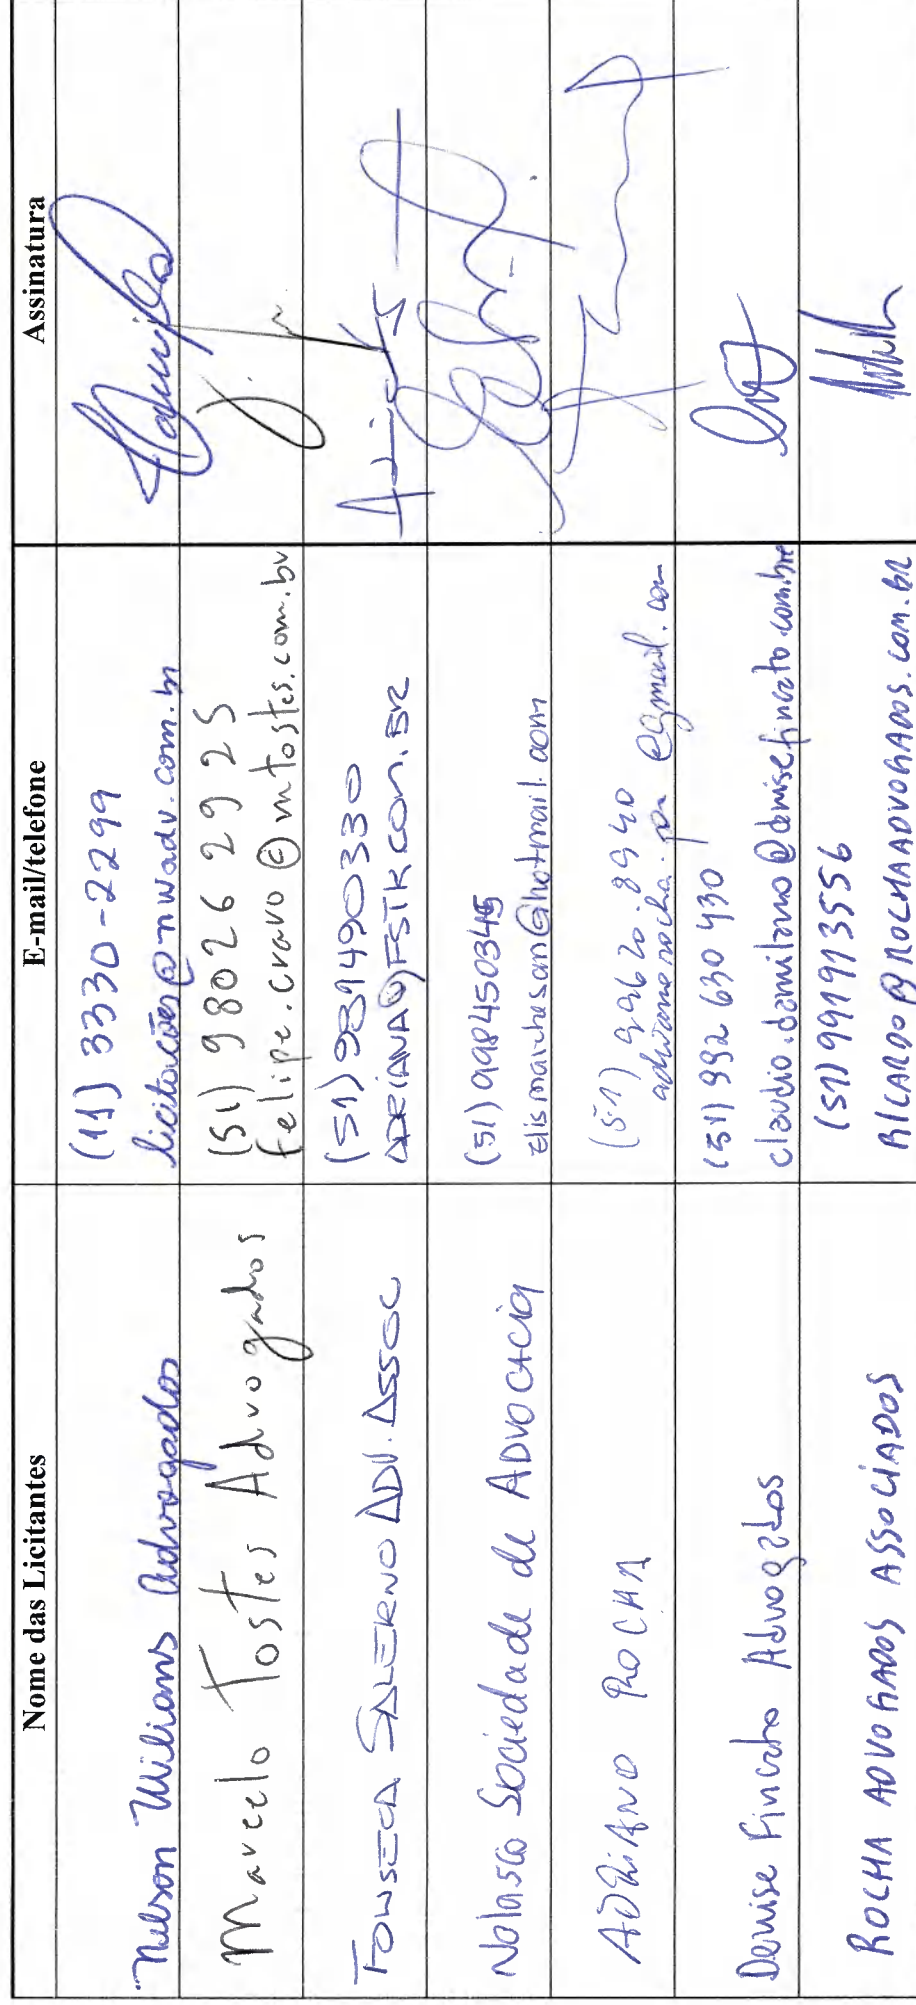 Nome das Licitantes E-mail/telefone Assinatura
Nelson Wilians Advogados (11) 3330-2299
licitacões@nwadv.com.br
Marcelo Tostes Advogados (51) 98026 2925
felipe.cravo@mtostes.com.br
FONSECA SALERNO ADV. ASSOC (51) 989490330
ADRIANA@FSTK.COM.BR
Nolasco Sociedade de ADVOCACIA (51) 998450345
elismarchesan@hotmail.com
ADRIANO ROCHA (51) 99620.8940
adrianorocha.poa@gmail.com
Denise Fincato Advogados (51) 992 630 430
claudio.damilano@denisefincato.com.br
ROCHA ADVOGADOS ASSOCIADOS (51) 991913556
RICARDO@ROCHAADVOGADOS.COM.BR